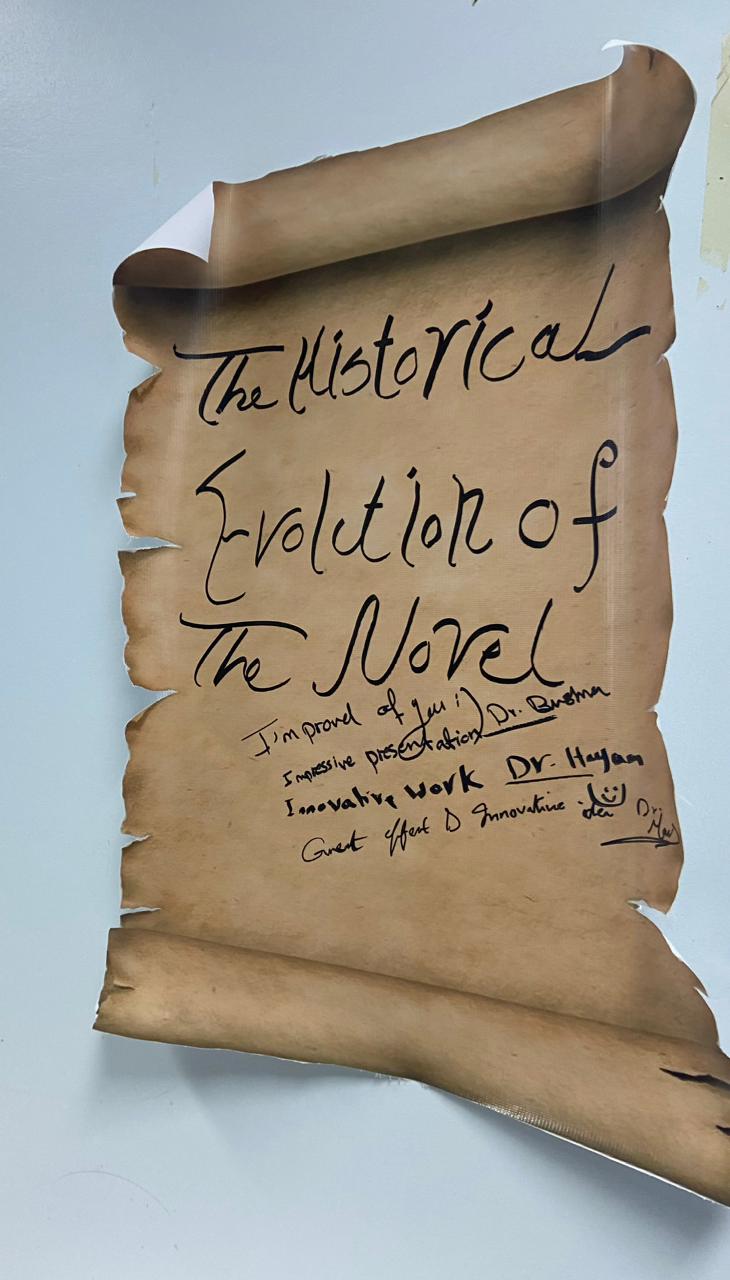 The Historical
Evolution of
The Novel
I'm proud of you :)
Impressive presentation Dr. Basma
Innovative work Dr. Hayam
Great effort & Innovative idea Dr. May